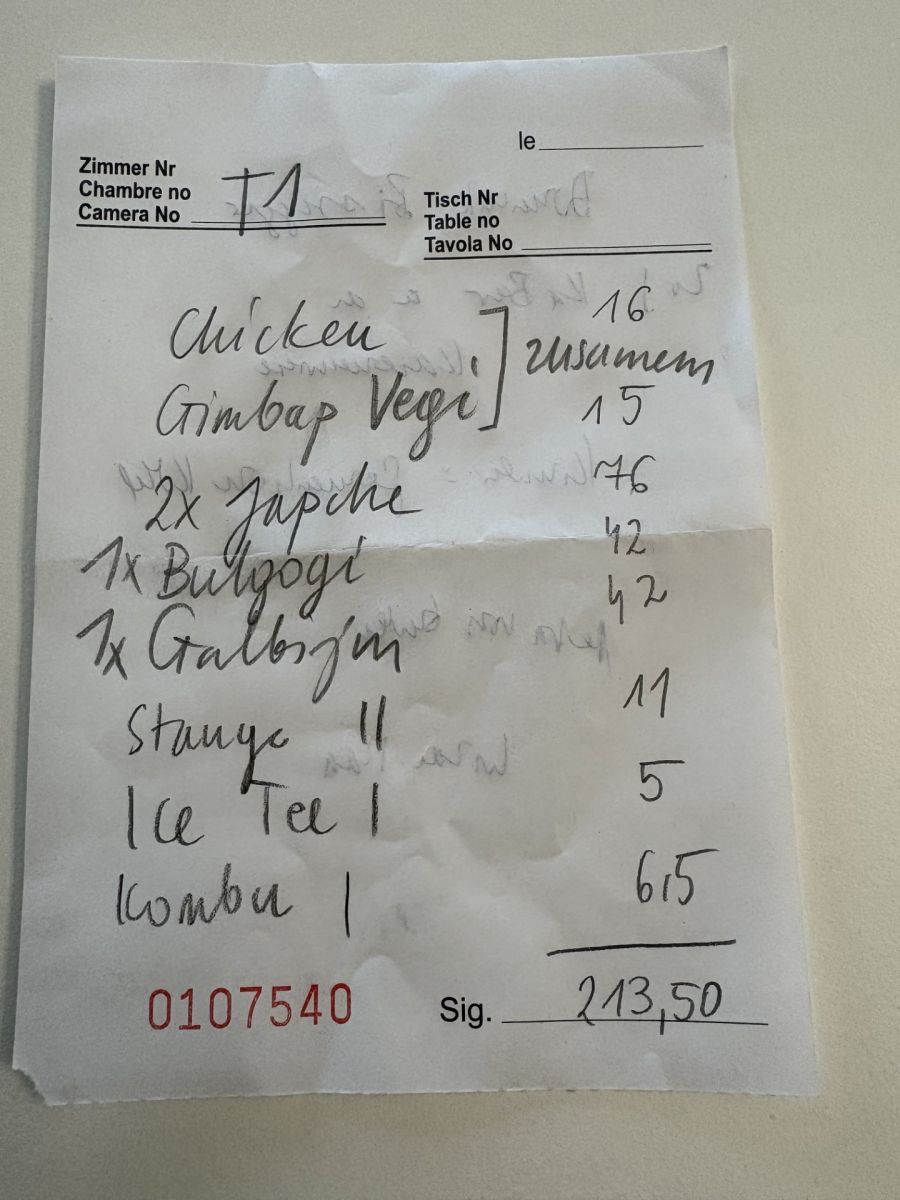 le
Zimmer Nr
Chambre no
Camera No T1
Tisch Nr
Table no
Tavola No
Chicken 16
] zusamem
Gimbap Vegi 15
2x Japche 76
1x Bulgogi 42
1x Galbijim 42
Stange II 11
Ice Tee I 5
Kombu I 6,5
0107540 Sig. 213,50